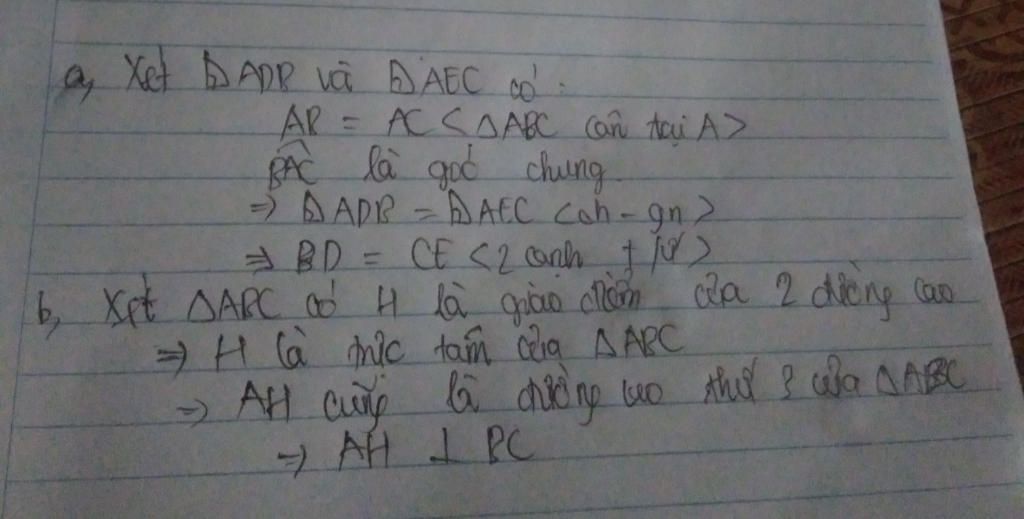 a, Xét ⊿ADB và ⊿AEC có:
AB = AC < △ABC cân tại A >
BAC là góc chung.
⇒ ⊿ADB = ⊿AEC < ch - gn >
⇒ BD = CE < 2 cạnh tứ >
b, Xét △ABC có H là giao điểm của 2 đường cao
⇒ H là trực tâm của △ABC
⇒ AH cũng là đường cao thứ 3 của △ABC
⇒ AH ⊥ BC